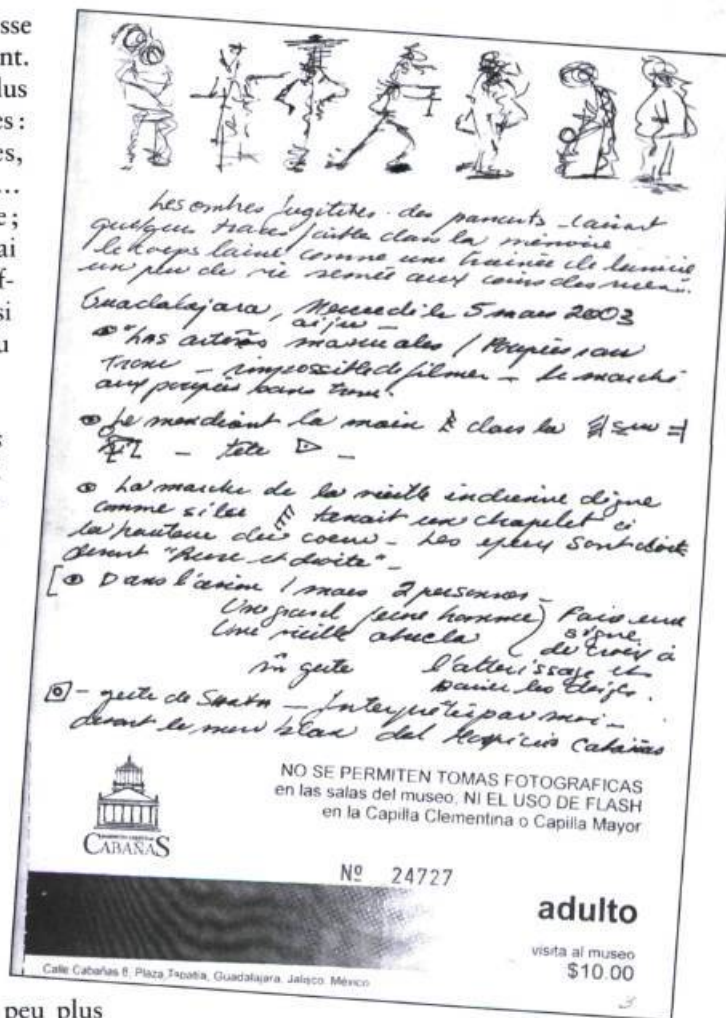 sse
nt.
lus
es :
es,
...
e ;
ai
f-
si
u
s
Les ombres fugitives des passants laissent
quelques traces faible dans la mémoire
le corps laisse comme une trainée de lumière
un peu de vie semée aux coins des rues.
Guadalajara, Mercredi le 5 mars 2003
manuales / Poupées sans
Tronc - impossible de filmer - le marché
aux poupées sans tronc.
Le mendiant la main dans la
- tête -
La marche de la vieille indienne digne
comme si elle tenait un chapelet à
la hauteur du coeur - Les yeux sont
devant "fière et droite" -
Dans l'avion 1 mars 2 personnes -
Un grand jeune homme) Fais une
Une vieille abuela signe
de croix à
m̂ geste l'atterrissage et
baiser les doigts.
- geste de - Interprété par moi -
devant le mur blanc del Hospicio Cabañas
NO SE PERMITEN TOMAS FOTOGRAFICAS
en las salas del museo, NI EL USO DE FLASH
en la Capilla Clementina o Capilla Mayor
CABAÑAS
Nº 24727
adulto
visita al museo
$10.00
Calle Cabañas 8, Plaza Tapatía, Guadalajara, Jalisco. México
3
peu plus